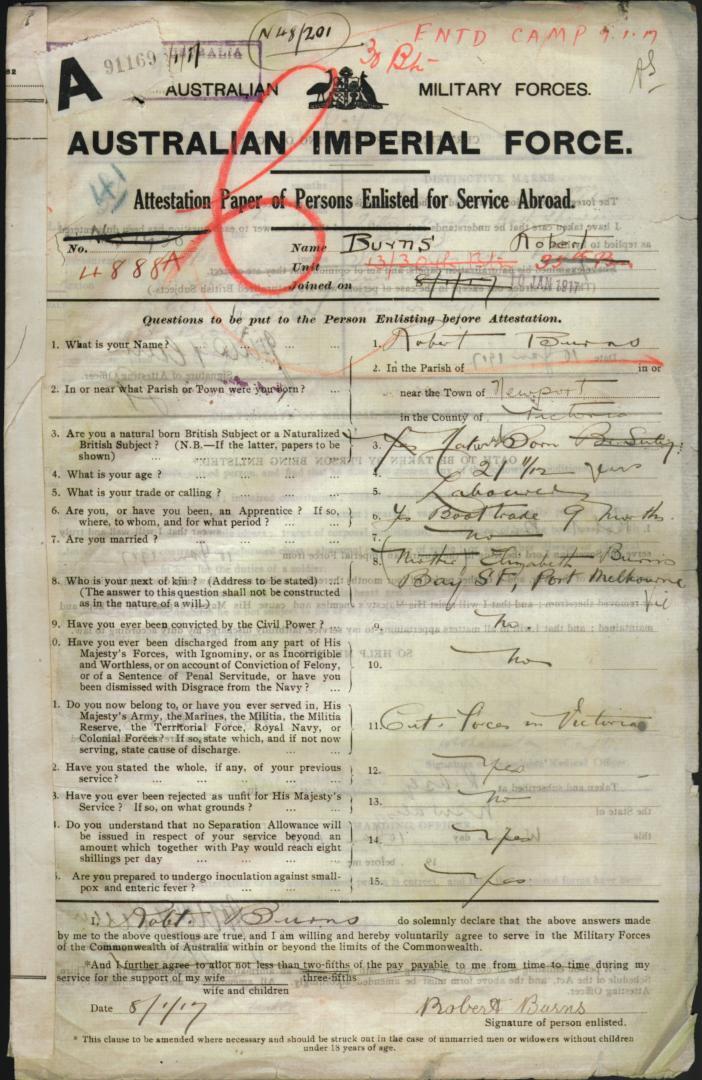 N48/201
ENTD CAMP 9.1.17
A
91169
AUSTRALIAN MILITARY FORCES.
AUSTRALIAN IMPERIAL FORCE.
Attestation Paper of Persons Enlisted for Service Abroad.
No. 4888A
Name Burns Robert
Unit
Joined on 8/1/17 10 JAN 1917
Questions to be put to the Person Enlisting before Attestation.
1. What is your Name? ... ... ... ...
1. Robert Burns
2. In or near what Parish or Town were you born? ...
2. In the Parish of in or
near the Town of Newport
in the County of Victoria
3. Are you a natural born British Subject or a Naturalized
British Subject? (N.B.—If the latter, papers to be
shown) ... ... ... ...
3. Yes Natural Born Br. Subj:
4. What is your age? ... ... ... ...
4. 21 11/12 years
5. What is your trade or calling? ... ... ...
5. Labourer
6. Are you, or have you been, an Apprentice? If so,
where, to whom, and for what period? ... ...
6. Yes Boot trade 9 months.
7. Are you married? ... ... ... ...
7. No
8. Who is your next of kin? (Address to be stated) ...
(The answer to this question shall not be constructed
as in the nature of a will.)
8. Mother Elizabeth Burns
Bay St, Port Melbourne
Vic
9. Have you ever been convicted by the Civil Power? ...
9. No.
0. Have you ever been discharged from any part of His
Majesty's Forces, with Ignominy, or as Incorrigible
and Worthless, or on account of Conviction of Felony,
or of a Sentence of Penal Servitude, or have you
been Dismissed with Disgrace from the Navy? ...
10. No
1. Do you now belong to, or have you ever served in, His
Majesty's Army, the Marines, the Militia, the Militia
Reserve, the Territorial Force, Royal Navy, or
Colonial Forces? If so, state which, and if not now
serving, state cause of discharge. ... ...
11. Cit. Forces in Victoria
2. Have you stated the whole, if any, of your previous
service? ... ... ... ...
12. Yes
3. Have you ever been rejected as unfit for His Majesty's
Service? If so, on what grounds? ... ...
13. No
4. Do you understand that no Separation Allowance will
be issued in respect of your service beyond an
amount which together with Pay would reach eight
shillings per day ... ... ... ...
14. Yes
5. Are you prepared to undergo inoculation against small-
pox and enteric fever? ... ... ...
15. Yes
I, Robt. Burns do solemnly declare that the above answers made
by me to the above questions are true, and I am willing and hereby voluntarily agree to serve in the Military Forces
of the Commonwealth of Australia within or beyond the limits of the Commonwealth.
*And I further agree to allot not less than two-fifths of the pay payable to me from time to time during my
three-fifths
service for the support of my wife
wife and children
Date 8/1/17
Robert Burns
Signature of person enlisted.
* This clause to be amended where necessary and should be struck out in the case of unmarried men or widowers without children
under 18 years of age.